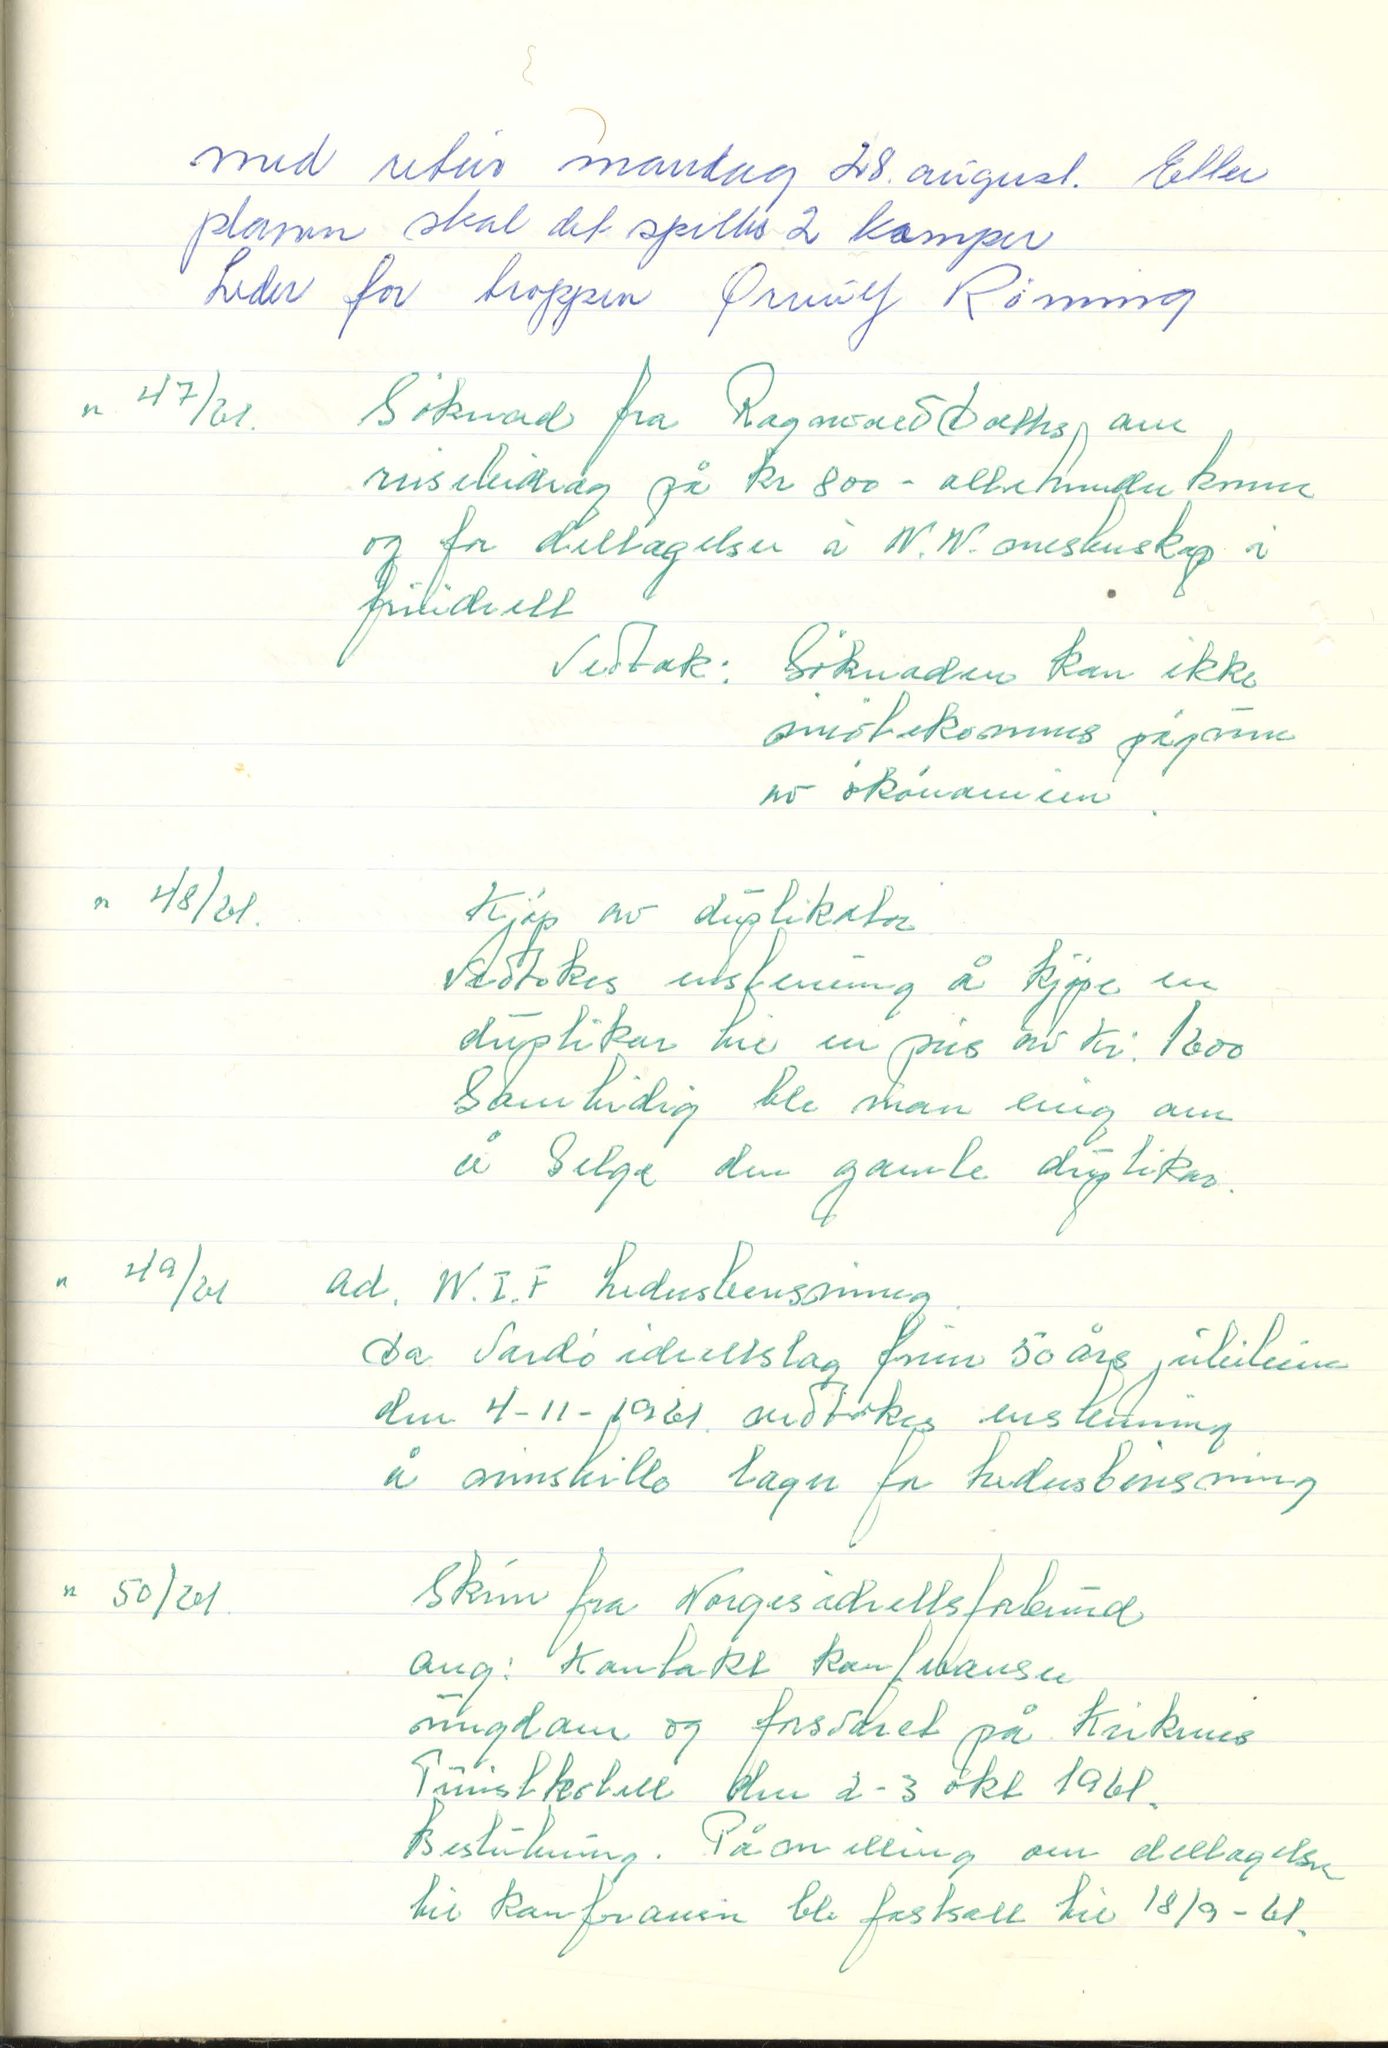 med retur mandag 28. august. Etter
planen skal det spilles 2 kamper
Leder for troppen Ørnulf Röning
" 47/61. Söknad fra Ragnvald Dahls, om
reisebidrag på kr 800 - åttehundre kroner
og for deltagelse i N.N. mesterskap i
friidrett
Vedtak: Söknaden kan ikke
imötekommes på grunn
av ökonomien.
" 48/61. Kjöp av duplikator
Vedtokes enstemmig å kjöpe en
duplikator til en pris av kr. 1600
Samtidig ble man enig om
å Selge den gamle duplikator.
" 49/61 ad. N.I.F Lederskurssmerking
Da Vardö idrettslag feirer 50 års jubileum
den 4-11-1961. vedtokes enstemmig
å innstille
" 50/61. Skriv fra Norges idrettsforbund
ang: Kontakt konferanse
ungdom og forsvaret på Kirkenes
Turisthotell den 2-3 okt 1961.
Beslutning. Påmelling om deltagelse
til konferansen ble fastsatt til 18/9-61.